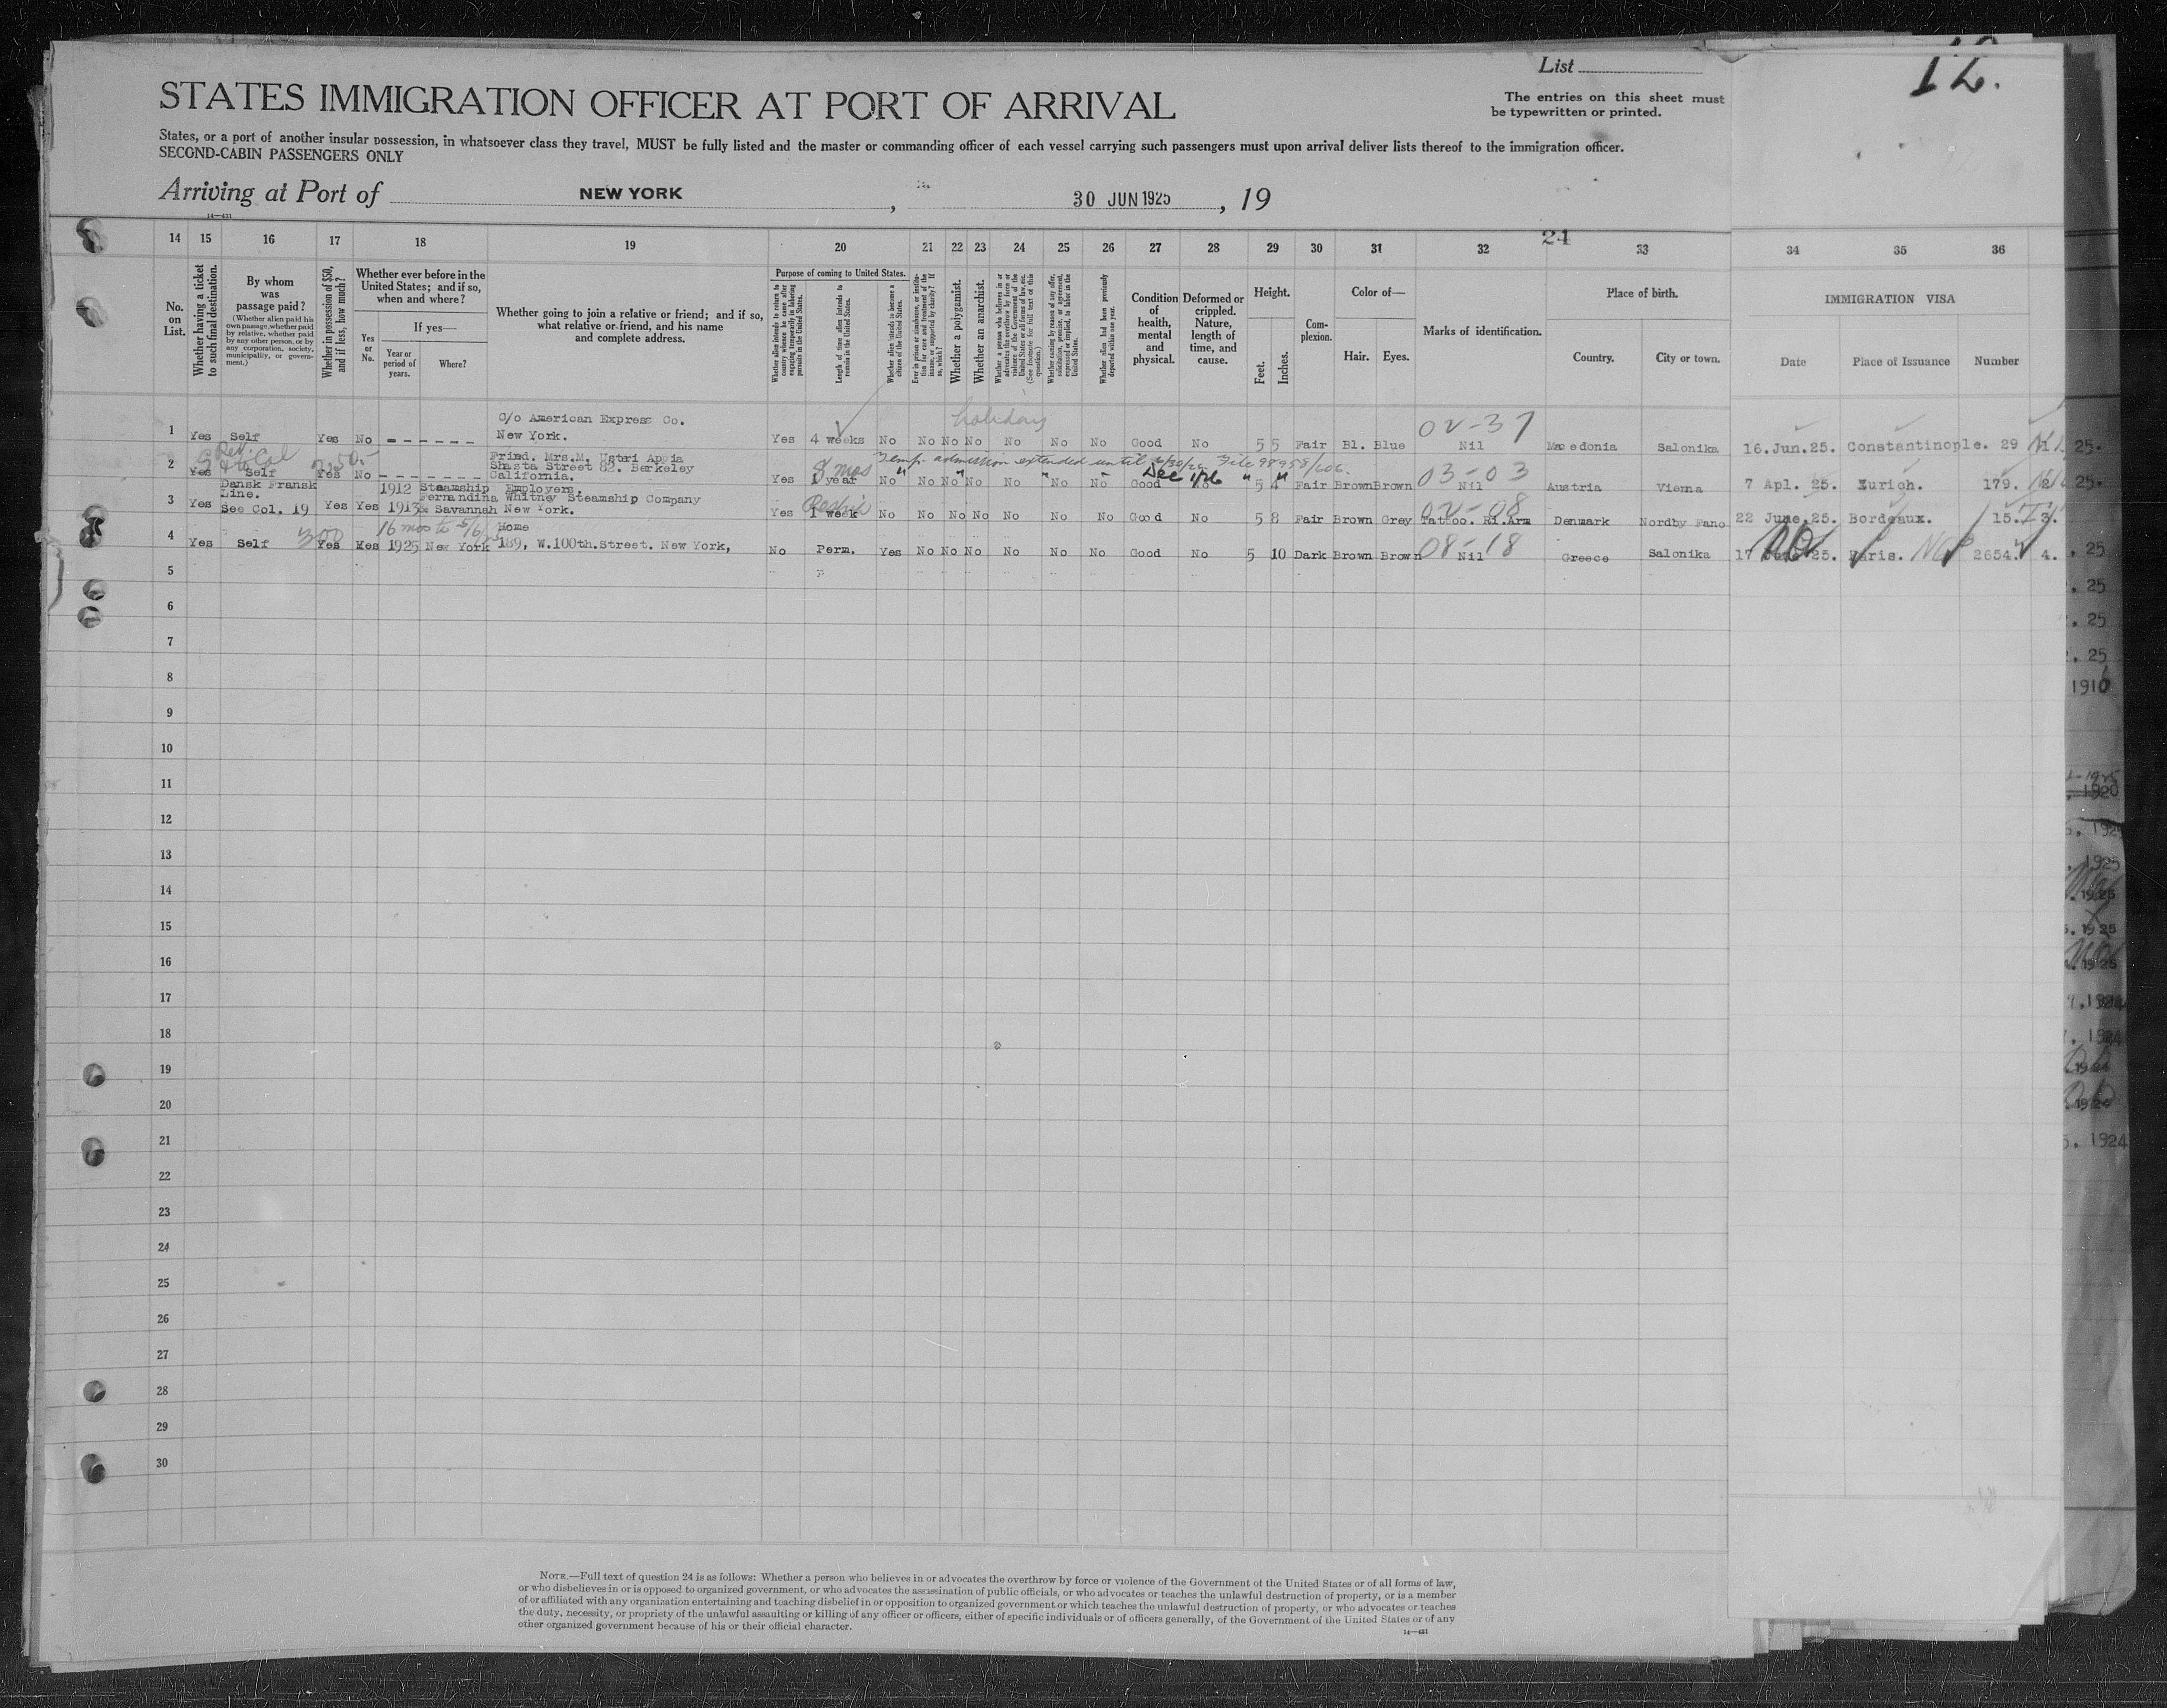 List
12.
STATES IMMIGRATION OFFICER AT PORT OF ARRIVAL
The entries on this sheet must
be typewritten or printed.
States, or a port of another insular possession, in whatsoever class they travel, MUST be fully listed and the master or commanding officer of each vessel carrying such passengers must upon arrival deliver lists thereof to the immigration officer.
SECOND-CABIN PASSENGERS ONLY
Arriving at Port of NEW YORK, 30 JUN 1925, 19
14—421
24
14 15 16 17 18 19 20 21 22 23 24 25 26 27 28 29 30 31 32 33 34 35 36
No. on List.
Whether having a ticket to such final destination.
By whom was passage paid?
(Whether alien paid his own passage, whether paid by relative, whether paid by any other person, or by any corporation, society, municipality, or government.)
Whether in possession of $50, and if less, how much?
Whether ever before in the United States; and if so, when and where?
Yes or No.
If yes—
Year or period of years.
Where?
Whether going to join a relative or friend; and if so, what relative or friend, and his name and complete address.
Purpose of coming to United States.
Whether alien intends to return to country whence he came after engaging temporarily in laboring pursuits in the United States.
Length of time alien intends to remain in the United States.
Whether alien intends to become a citizen of the United States.
Ever in prison or almshouse, or institution for care and treatment of the insane, or supported by charity? If so, which?
Whether a polygamist.
Whether an anarchist.
Whether a person who believes in or advocates the overthrow by force or violence of the Government of the United States or all forms of law, etc. (See footnote for full text of this question.)
Whether coming by reason of any offer, solicitation, promise, or agreement, expressed or implied, to labor in the United States.
Whether alien had been previously deported within one year.
Condition of health, mental and physical.
Deformed or crippled. Nature, length of time, and cause.
Height.
Feet. Inches.
Complexion.
Color of—
Hair. Eyes.
Marks of identification.
Place of birth.
Country. City or town.
IMMIGRATION VISA
Date Place of Issuance Number
holiday 02-37
1 Yes Self Yes No - - - - - - C/o American Express Co. New York. Yes 4 weeks No No No No No No No Good No 5 5 Fair Bl. Blue Nil Macedonia Salonika 16.Jun.25. Constantinople. 29
Temp. admission extended until 6/30/26 File 98958/606.
Dec 1/26
8 mos 03-03
2 Yes Self Yes No - - - - - - Frind. Mrs.M. Usteri Appia Shasta Street 82. Berkeley California. Yes 1 year No No No No No No No Good No 5 4 Fair Brown Brown Nil Austria Vienna 7 Apl. 25. Zurich. 179. 2
02-08
3 Yes Dansk Fransk Line. See Col. 19 Yes Yes 1912 1913 Steamship Fernandina & Savannah Employers. Whitney Steamship Company New York. Yes 1 week No No No No No No No Good No 5 8 Fair Brown Grey Tattoo. Ri.Arm Denmark Nordby Fano 22 June.25. Bordeaux. 15. 3.
300 16 mos to 08-18
4 Yes Self Yes Yes 1925 New York Home 189, W.100th.Street. New York, No Perm. Yes No No No No No No Good No 5 10 Dark Brown Brown Nil Greece Salonika 17 June 25. Paris. 2654. 4.
5
6
7
8
9
10
11
12
13
14
15
16
17
18
19
20
21
22
23
24
25
26
27
28
29
30
25.
25.
, 25
. 25
. 25
. 25
1910
. 1920
1925
. 1925
1925
1925
1924
. 1924
1924
1924
. 1924
NOTE.—Full text of question 24 is as follows: Whether a person who believes in or advocates the overthrow by force or violence of the Government of the United States or of all forms of law,
or who disbelieves in or is opposed to organized government, or who advocates the assassination of public officials, or who advocates or teaches the unlawful destruction of property, or is a member
of or affiliated with any organization entertaining and teaching disbelief in or opposition to organized government or which teaches the unlawful destruction of property, or who advocates or teaches
the duty, necessity, or propriety of the unlawful assaulting or killing of any officer or officers, either of specific individuals or of officers generally, of the Government of the United States or of any
other organized government because of his or their official character.
14—421